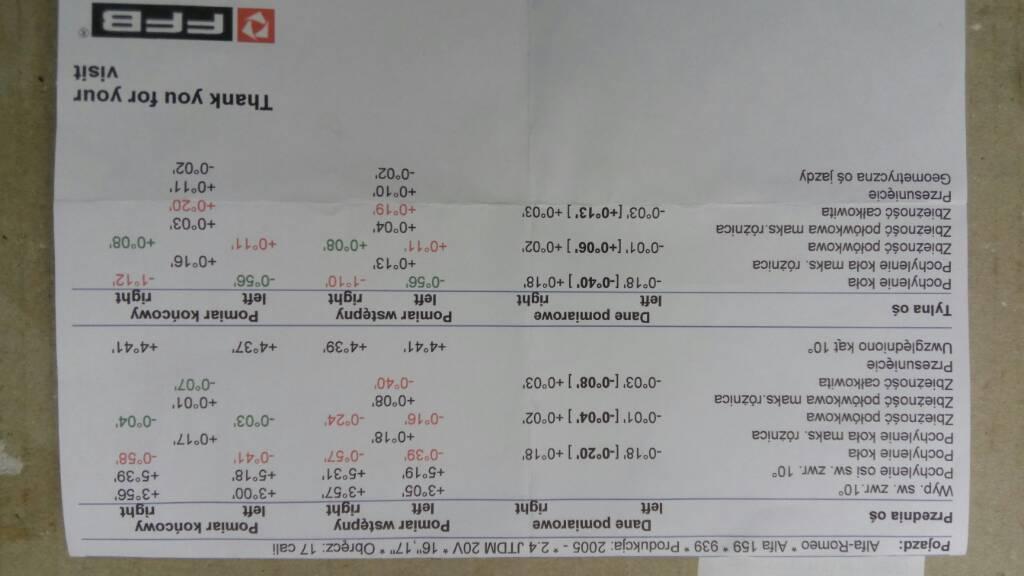 Pojazd: Alfa-Romeo * Alfa 159 * 939 * Produkcja: 2005 - * 2.4 JTDM 20V * 16",17" * Obręcz: 17 cali
Przednia oś Dane pomiarowe Pomiar wstępny Pomiar końcowy
left right left right left right
Wyp. sw. zwr.10° +3°05' +3°57' +3°00' +3°56'
Pochylenie osi sw. zwr. 10° +5°19' +5°31' +5°18' +5°39'
Pochylenie koła -0°18' [-0°20' ] +0°18' -0°39' -0°57' -0°41' -0°58'
Pochylenie koła maks. różnica +0°18' +0°17'
Zbieżność połówkowa -0°01' [-0°04' ] +0°02' -0°16' -0°24' -0°03' -0°04'
Zbieżność połówkowa maks.różnica +0°08' +0°01'
Zbieżność całkowita -0°03' [-0°08' ] +0°03' -0°40' -0°07'
Przesunięcie
Uwzględniono kąt 10° +4°41' +4°39' +4°37' +4°41'
Tylna oś Dane pomiarowe Pomiar wstępny Pomiar końcowy
left right left right left right
Pochylenie koła -0°18' [-0°40' ] +0°18' -0°56' -1°10' -0°56' -1°12'
Pochylenie koła maks. różnica +0°13' +0°16'
Zbieżność połówkowa -0°01' [+0°06' ] +0°02' +0°11' +0°08' +0°11' +0°08'
Zbieżność połówkowa maks.różnica +0°04' +0°03'
Zbieżność całkowita -0°03' [+0°13' ] +0°03' +0°19' +0°20'
Przesunięcie +0°10' +0°11'
Geometryczna oś jazdy -0°02' -0°02'
Thank you for your
visit
FFB®